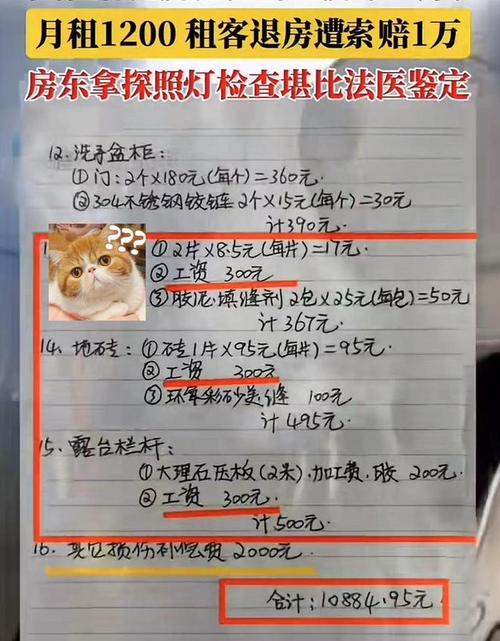 月租1200 租客退房遭索赔1万
房东拿探照灯检查堪比法医鉴定
12、洗手盆柜:
①门:2个×180元(每个)=360元
②304不锈钢铰链 2个×15元(每个)=30元
计390元
???
①2片×8.5元(每片)=17元
②工资 300元
③胶泥、填缝剂 2包×25元(每包)=50元
计367元
14、地砖:①砖1片×95元(每片)=95元
②工资 300元
③环氧彩砂美缝 100元
计495元
15、露台栏杆:
①大理石压板(2米)、加工费、胶 200元
②工资 300元
计500元
16、其它损伤补偿费 2000元
合计:10884.95元